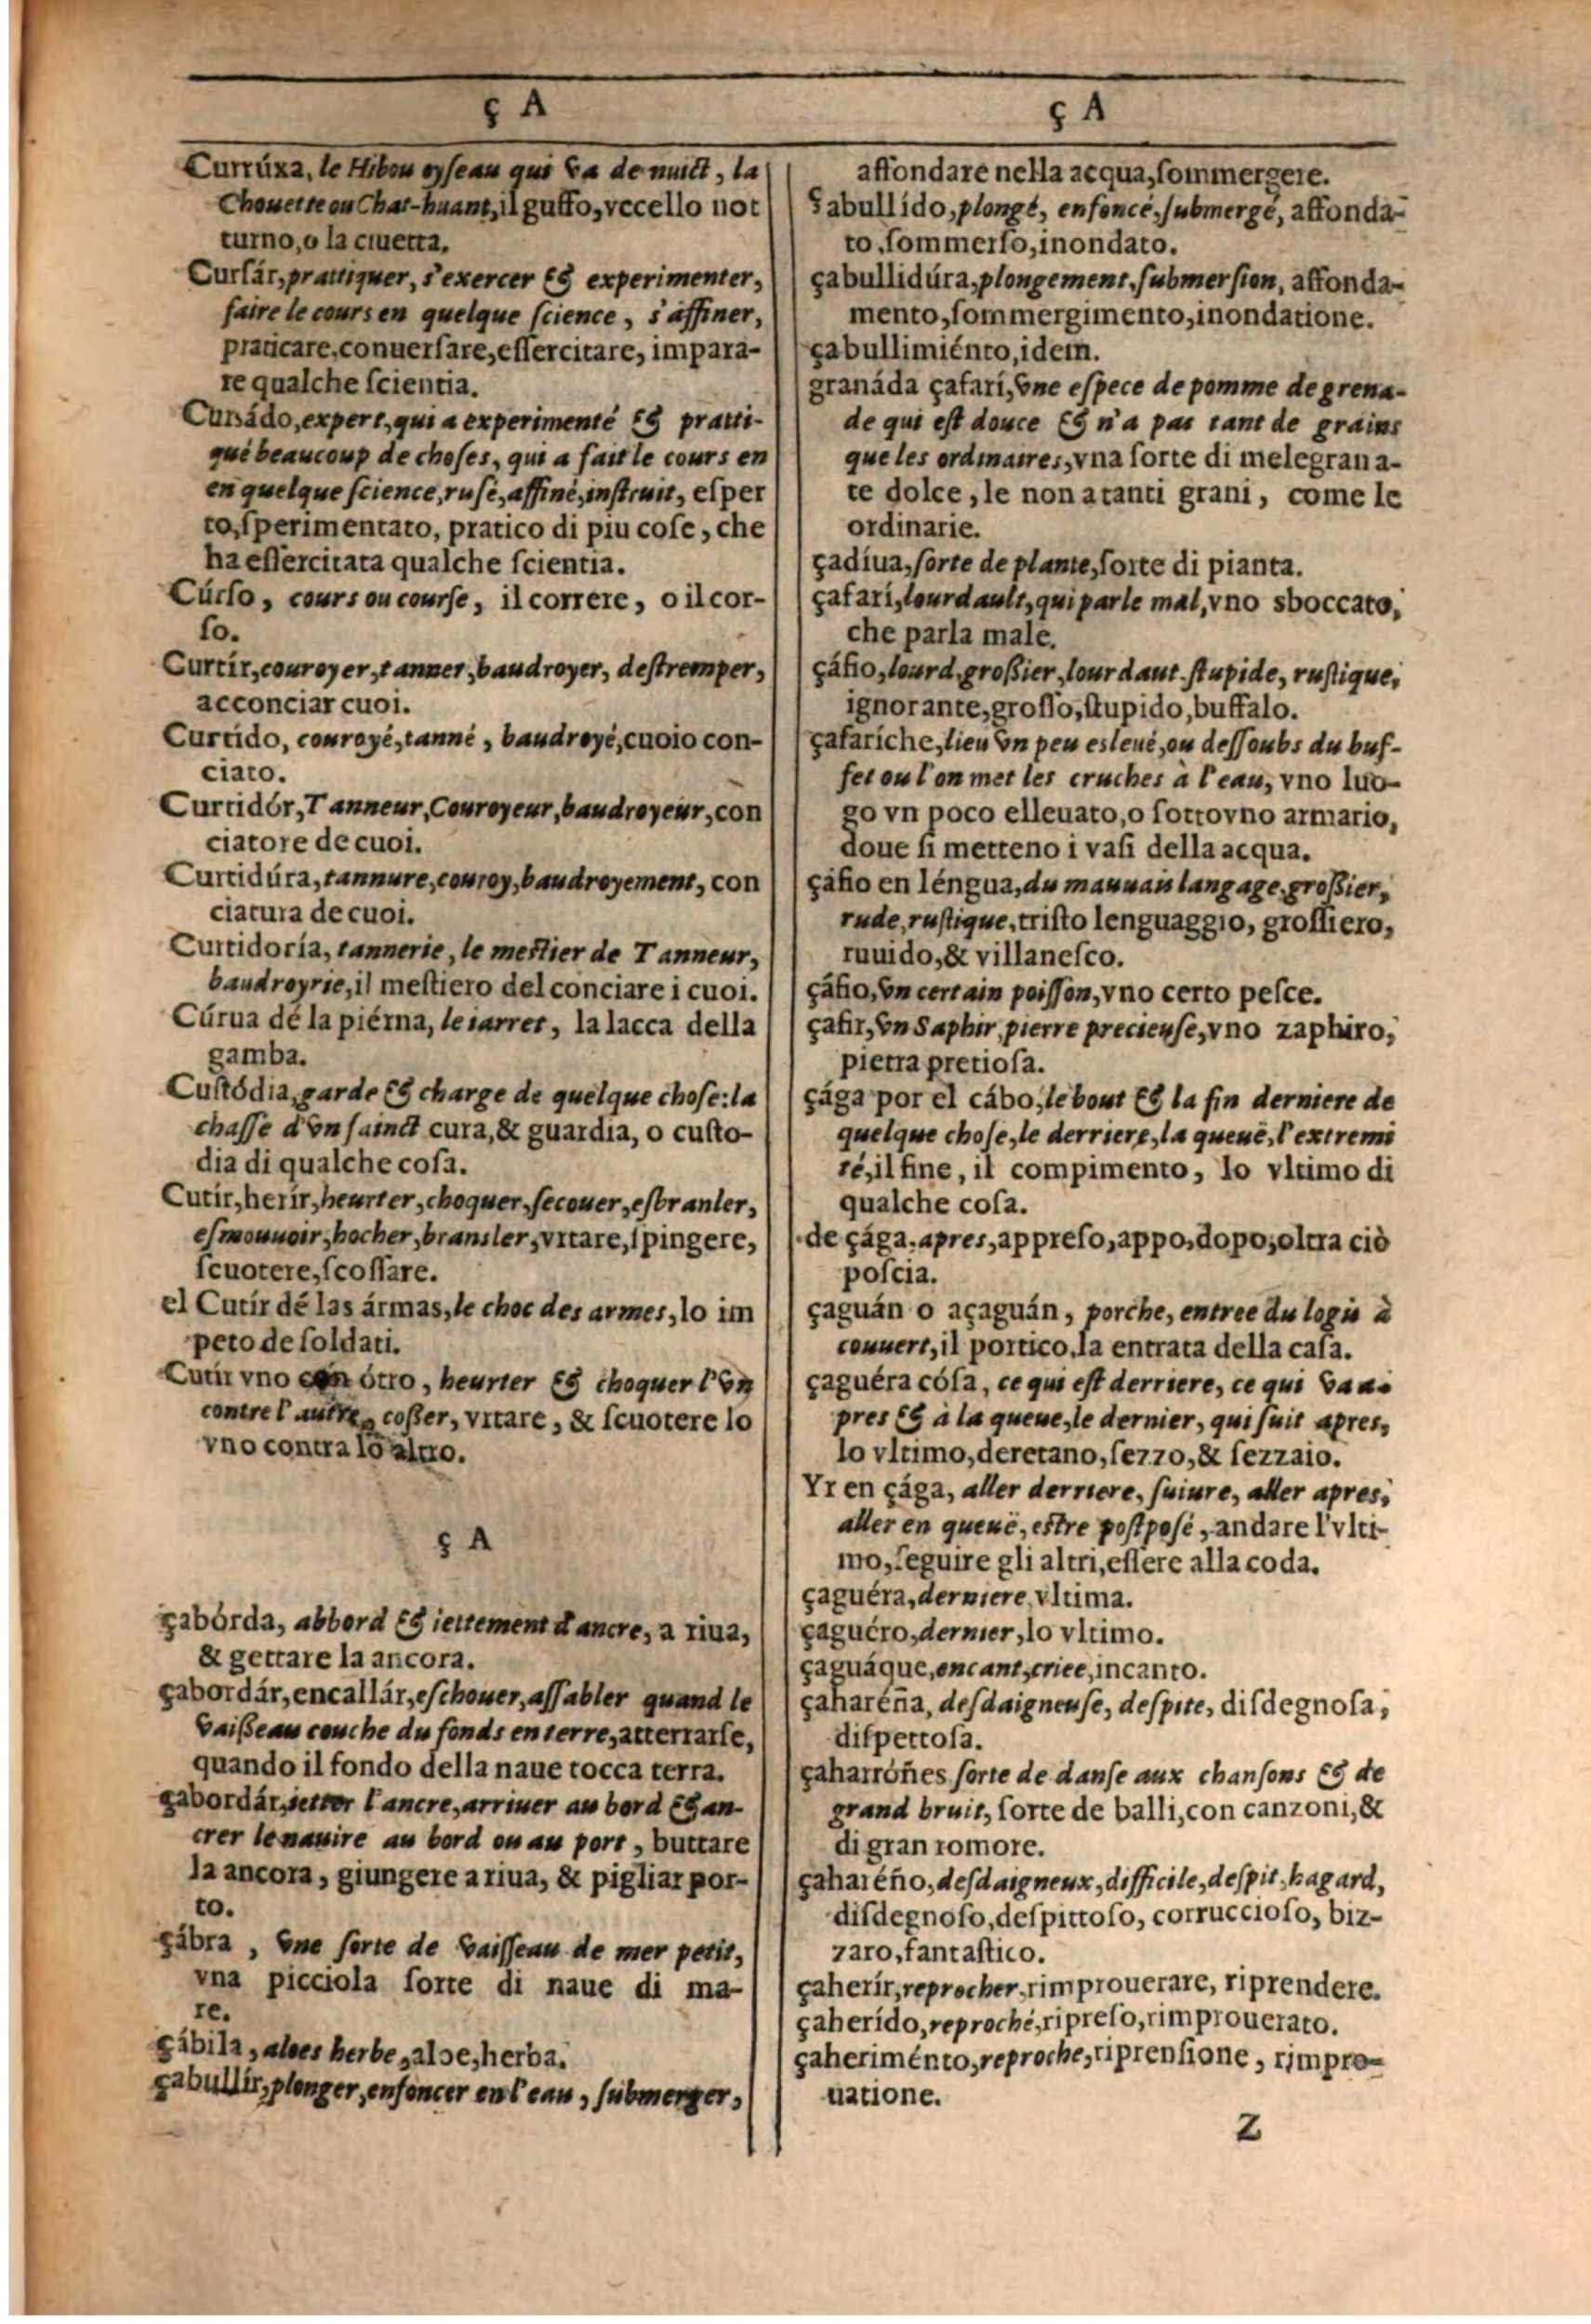 ç A
Currúxa, le Hibou oyſeau qui va de nuict, la
Chouette ou Chat-huant, il guffo, vccello not
turno, o la ciuetta.
Curſár, prattiquer, s'exercer & experimenter,
faire le cours en quelque ſcience, s'affiner,
praticare, conuerſare, eſſercitare, impara-
re qualche ſcientia.
Cursádo, expert, qui a experimenté & pratti-
qué beaucoup de choſes, qui a fait le cours en
en quelque ſcience, ruſé, affiné, inſtruit, eſper
to, ſperimentato, pratico di piu coſe, che
ha eſſercitata qualche ſcientia.
Cúrſo, cours ou courſe, il correre, o il cor-
ſo.
Curtír, couroyer, tanner, baudroyer, deſtremper,
acconciar cuoi.
Curtído, couroyé, tanné, baudroyé, cuoio con-
ciato.
Curtidór, Tanneur, Couroyeur, baudroyeur, con
ciatore de cuoi.
Curtidúra, tannure, couroy, baudroyement, con
ciatura de cuoi.
Curtidoría, tannerie, le meſtier de Tanneur,
baudroyrie, il meſtiero del conciare i cuoi.
Cúrua dé la piérna, le iarret, la lacca della
gamba.
Cuſtódia, garde & charge de quelque choſe: la
chaſſe d'vn ſainct cura, & guardia, o cuſto-
dia di qualche coſa.
Cutír, herír, heurter, choquer, ſecouer, eſbranler,
eſmouuoir, hocher, bransler, vrtare, ſpingere,
ſcuotere, ſcoſſare.
el Cutír dé las ármas, le choc des armes, lo im
peto de ſoldati.
Cutír vno con ótro, heurter & choquer l'vn
contre l'autre, coſſer, vrtare, & ſcuotere lo
vno contra lo altro.
ç A
çabórda, abbord & iettement d'ancre, a riua,
& gettare la ancora.
çabordár, encallár, eſchouer, aſſabler quand le
vaiſſeau couche du fonds en terre, atterrarſe,
quando il fondo della naue tocca terra.
çabordár, ietter l'ancre, arriuer au bord & an-
crer le nauire au bord ou au port, buttare
la ancora, giungere a riua, & pigliar por-
to.
çábra, vne ſorte de vaiſſeau de mer petit,
vna picciola ſorte di naue di ma-
re.
çábila, aloes herbe, aloe, herba.
çabullír, plonger, enfoncer en l'eau, ſubmerger,
ç A
affondare nella acqua, ſommergere.
çabullído, plongé, enfoncé, ſubmergé, affonda-
to, ſommerſo, inondato.
çabullidúra, plongement, ſubmerſion, affonda-
mento, ſommergimento, inondatione.
çabullimiénto, idem.
granáda çafarí, vne eſpece de pomme de grena-
de qui eſt douce & n'a pas tant de grains
que les ordinaires, vna ſorte di melegrana-
te dolce, le non a tanti grani, come le
ordinarie.
çadíua, ſorte de plante, ſorte di pianta.
çafarí, lourdault, qui parle mal, vno sboccato,
che parla male.
çáfio, lourd, groſſier, lourdaut, ſtupide, ruſtique,
ignorante, groſſo, ſtupido, buffalo.
çafaríche, lieu vn peu esleué, ou deſſoubs du buf-
fet ou l'on met les cruches à l'eau, vno luo-
go vn poco elleuato, o ſottovno armario,
doue ſi metteno i vaſi della acqua.
çáfio en léngua, du mauuais langage, groſſier,
rude, ruſtique, triſto lenguaggio, groſſiero,
ruuido, & villaneſco.
çáfio, vn certain poiſſon, vno certo peſce.
çafir, vn Saphir, pierre precieuſe, vno zaphiro,
pietra pretioſa.
çága por el cábo, le bout & la fin derniere de
quelque choſe, le derriere, la queuë, l'extremi
té, il fine, il compimento, lo vltimo di
qualche coſa.
de çága, apres, appreſo, appo, dopo, oltra ciò
poſcia.
çaguán o açaguán, porche, entree du logis à
couuert, il portico, la entrata della caſa.
çaguéra cóſa, ce qui eſt derriere, ce qui va a-
pres & à la queue, le dernier, qui ſuit apres,
lo vltimo, deretano, ſezzo, & ſezzaio.
Yr en çága, aller derriere, ſuiure, aller apres,
aller en queuë, eſtre poſtpoſé, andare l'vlti-
mo, ſeguire gli altri, eſſere alla coda.
çaguéra, derniere, vltima.
çaguéro, dernier, lo vltimo.
çaguáque, encant, criee, incanto.
çaharéña, deſdaigneuſe, deſpite, diſdegnoſa,
diſpettoſa.
çaharróñes ſorte de danſe aux chanſons & de
grand bruit, ſorte de balli, con canzoni, &
di gran romore.
çaharéño, deſdaigneux, difficile, deſpit, hagard,
diſdegnoſo, deſpittoſo, corruccioſo, biz-
zaro, fantaſtico.
çaherír, reprocher, rimprouerare, riprendere.
çaherído, reproché, ripreſo, rimprouerato.
çaheriménto, reproche, riprenſione, rimpro-
uatione.
Z